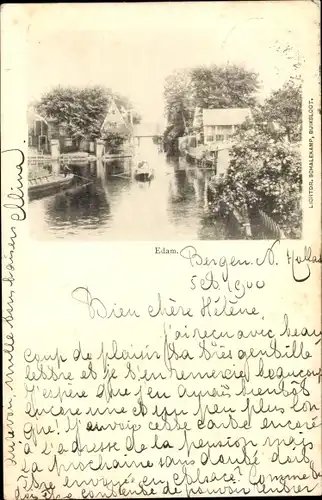 Edam.
LICHTDR. SCHALEKAMP, BUIKSLOOT.
Bergen. N. Holland
5 Oct. 1900
Bien chère Hélène,
J'ai reçu avec beau
coup de plaisir ta très gentille
lettre et je t'en remercie beaucoup
J'espère que j'en aurais bientôt
encore une et un peu plus lon
gue! J'envoie cette carte encore
à l'adresse de ta pension mais
ta prochaine sans doute doit
être envoyée en Alsace? Comme
tu dois être contente de pouvoir
mille baisers
Mina